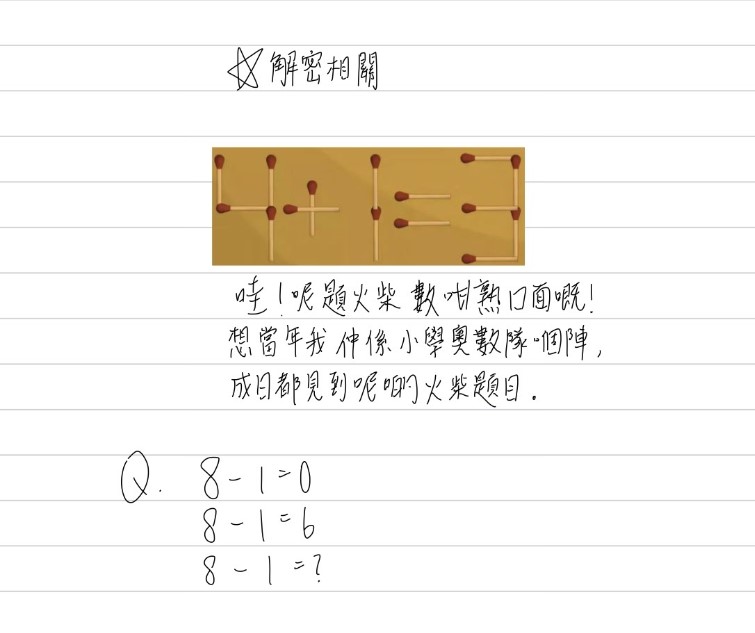 ☆解密相關
4+1=3
哇！呢題火柴數咁熟口面嘅！
想當年我仲係小學奧數隊嗰陣，
成日都見到呢啲火柴題目.
Q. 8-1=0
8-1=6
8-1=?